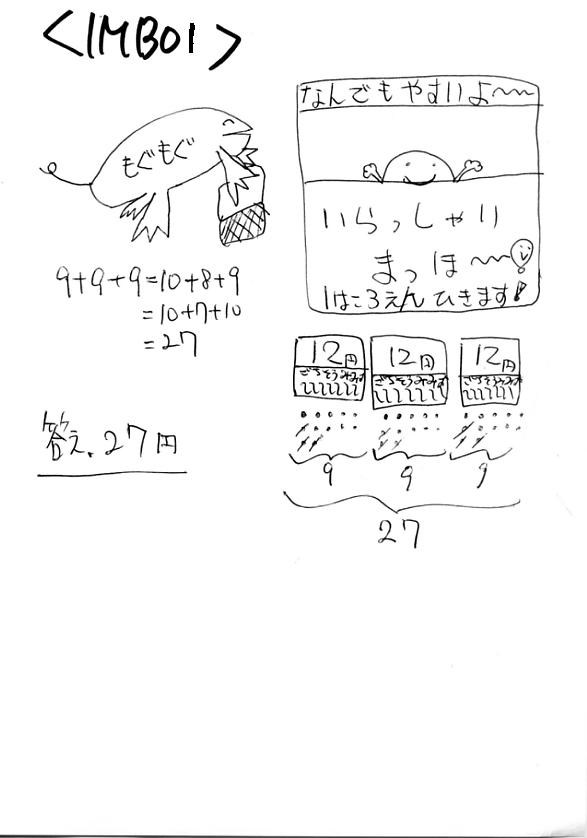 <IMB01>
なんでもやすいよ〜〜
もぐもぐ
いらっしゃり
まっほ〜〜
1はこ3えんひきます!
9+9+9=10+8+9
=10+7+10
=27
12円 12円 12円
ごちそうみみず ごちそうみみず ごちそうみみず
9 9 9
27
答え.27円